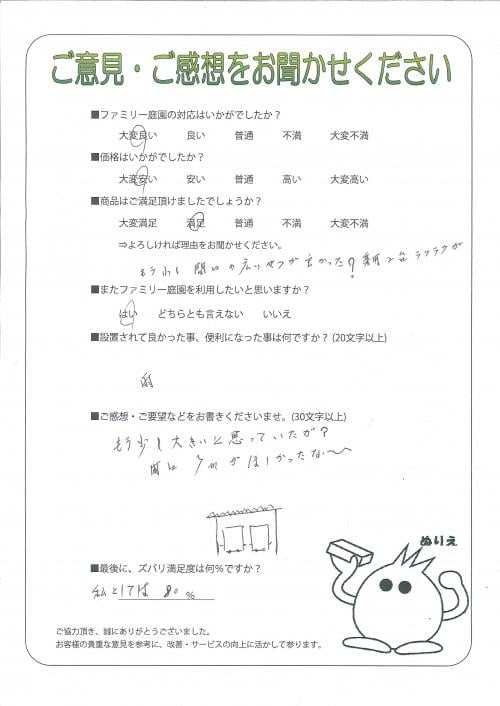 ご意見・ご感想をお聞かせください
■ファミリー庭園の対応はいかがでしたか？
大変良い 良い 普通 不満 大変不満
■価格はいかがでしたか？
大変安い 安い 普通 高い 大変高い
■商品はご満足頂けましたでしょうか？
大変満足 満足 普通 不満 大変不満
⇒よろしければ理由をお聞かせください。
もう少し間口の広いやつが良かった？ 2台ラクラクが
■またファミリー庭園を利用したいと思いますか？
はい どちらとも言えない いいえ
■設置されて良かった事、便利になった事は何ですか？(20文字以上)
雨
■ご感想・ご要望などをお書きくださいませ。(30文字以上)
もう少し大きいと思っていたが？
間口 がほしかったな〜
ぬりえ
■最後に、ズバリ満足度は何％ですか？
私としては 80 ％
ご協力頂き、誠にありがとうございました。
お客様の貴重な意見を参考に、改善・サービスの向上に活かして参ります。